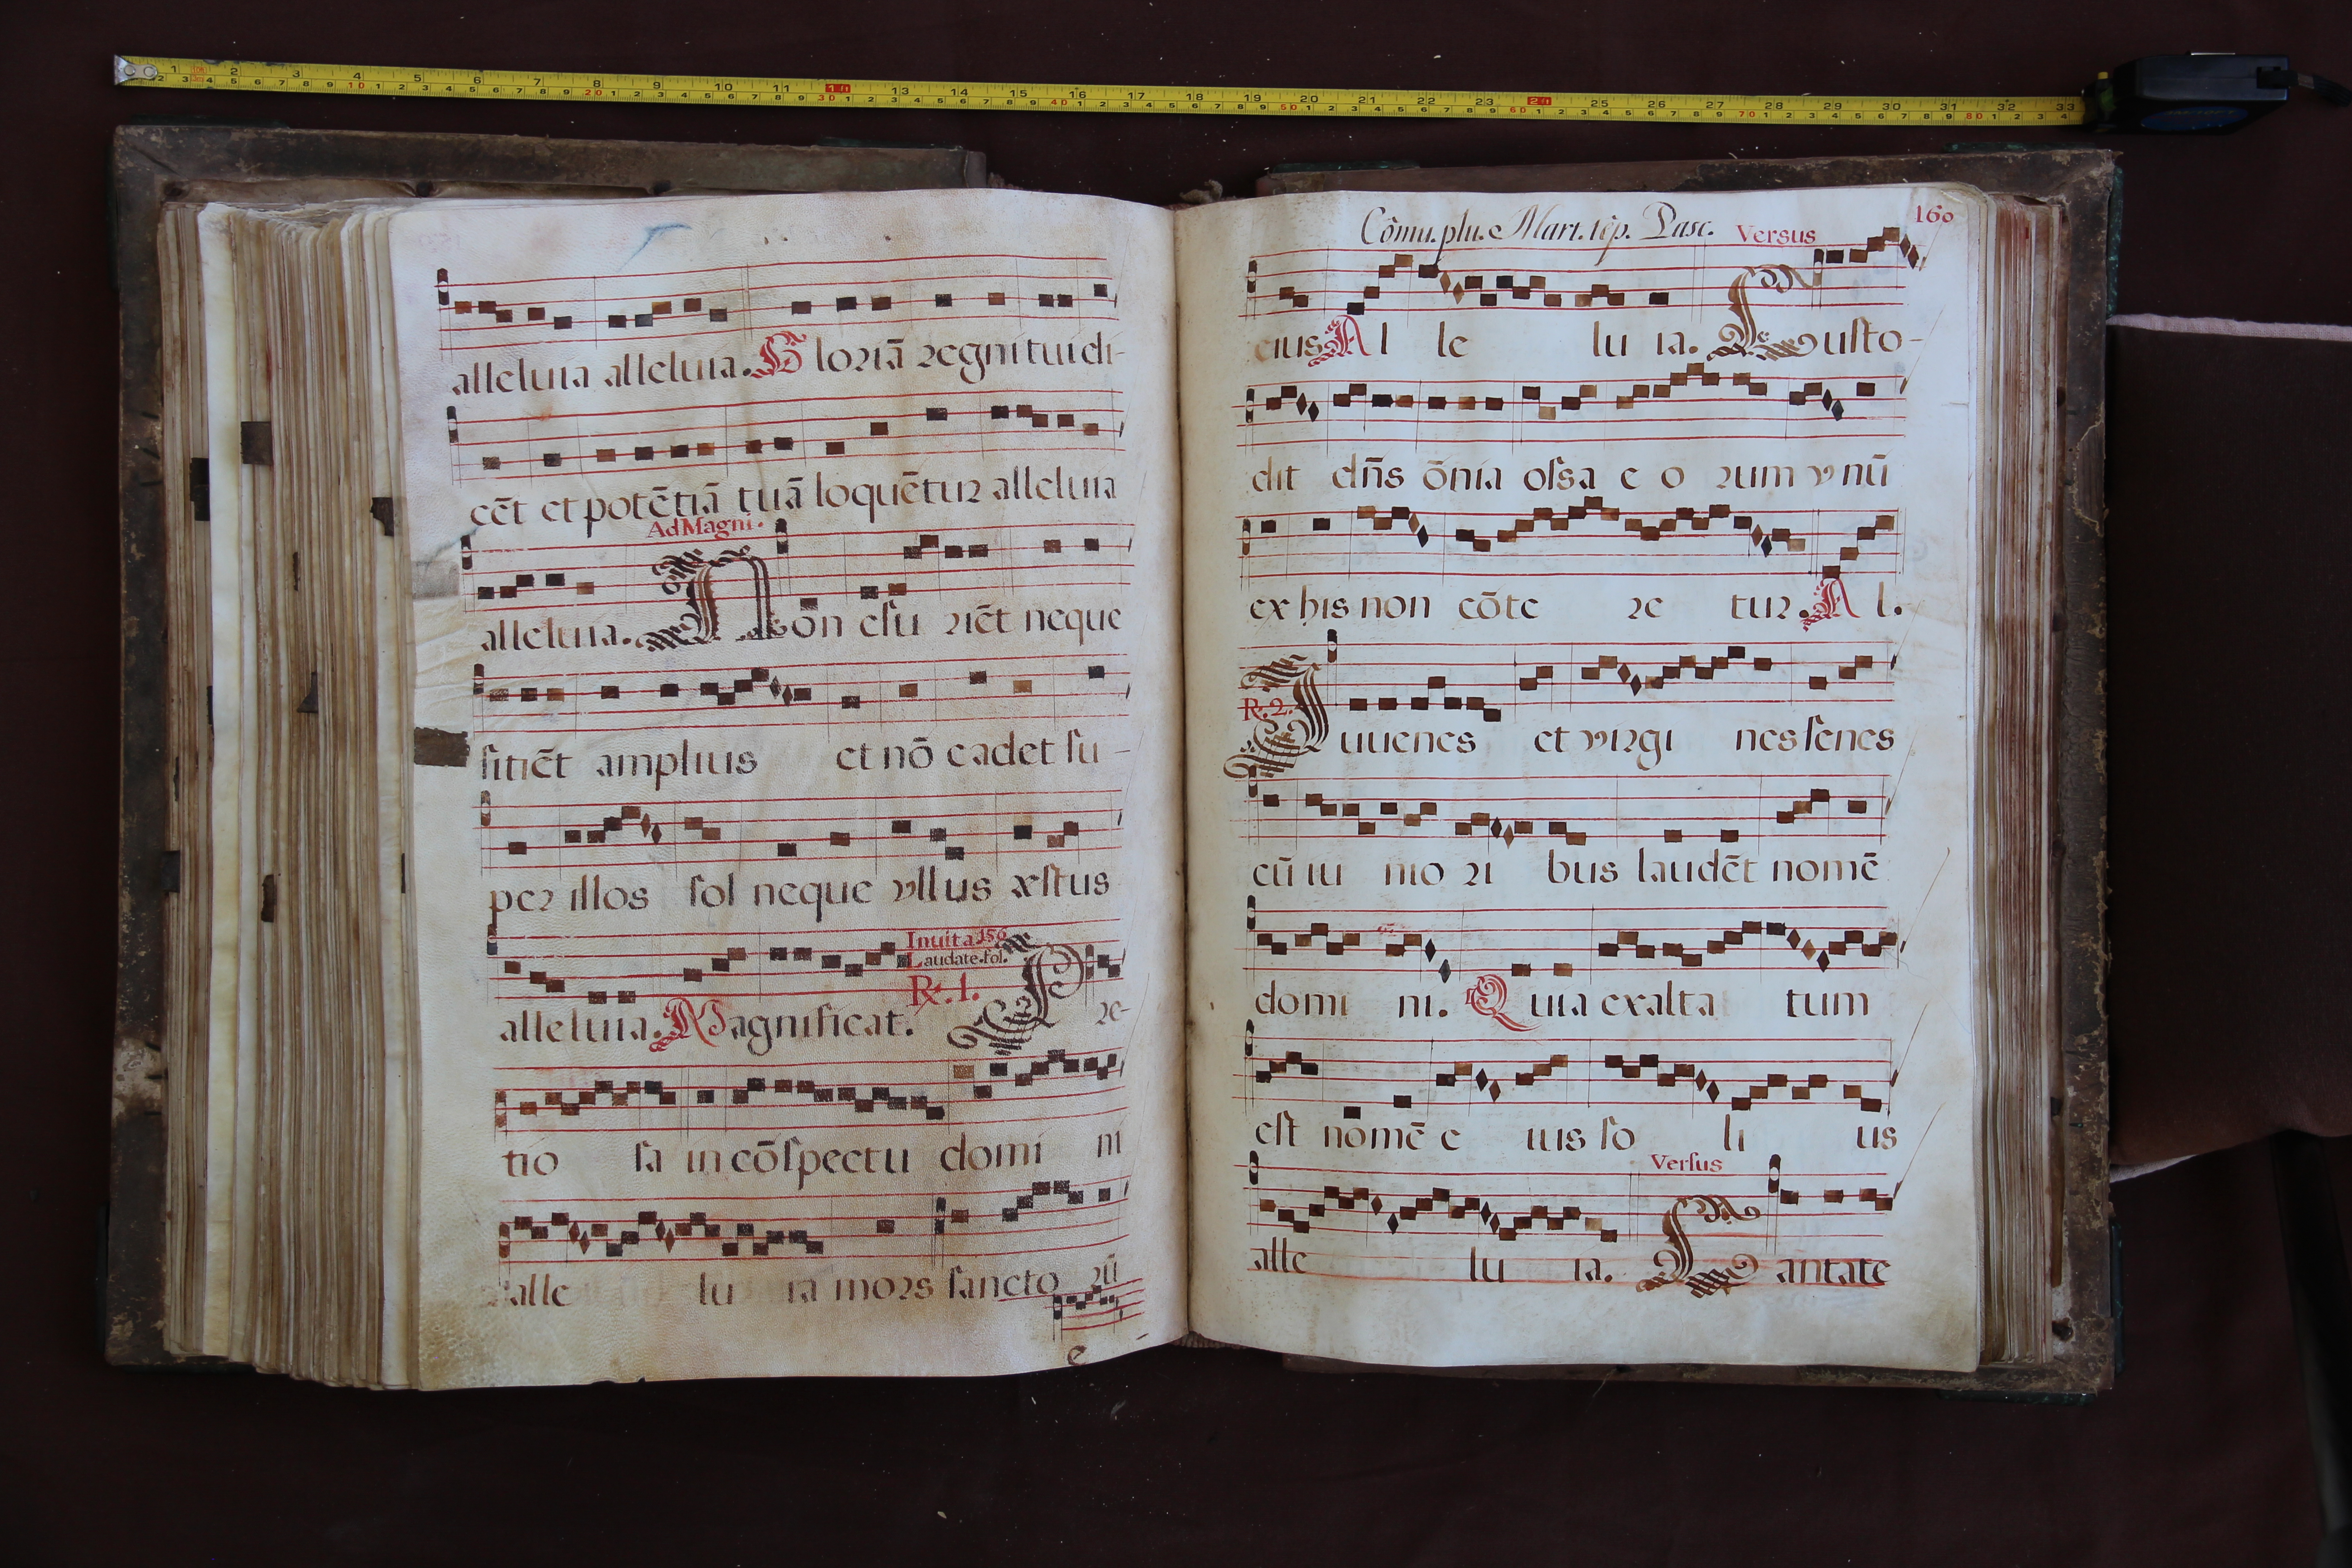 alleluia alleluia. Gloriã regni tui di-
cẽt et potẽtiã tuã loquẽtur alleluia
Ad Magni.
alleluia. Non esu riẽt neque
sitiẽt amplius et nõ cadet su-
per illos sol neque vllus æstus
Inuita 156
Laudate. fol.
alleluia. Magnificat. R. 1. Pre-
tio sa in cõspectu domi ni
alle lu ia mors sancto rũ
e
Cõmu. plu. Mart. tẽp. Pasc. Versus 160
eius Al le lu ia. Custo-
dit dñs õnia ossa e o rum vnũ
ex his non cõte re tur. Al.
R. 2. Iuuenes et virgi nes senes
cũ iu nio ri bus laudẽt nomẽ
domi ni. Quia exalta tum
est nomẽ e ius so li us
Versus
alle lu ia. Cantate